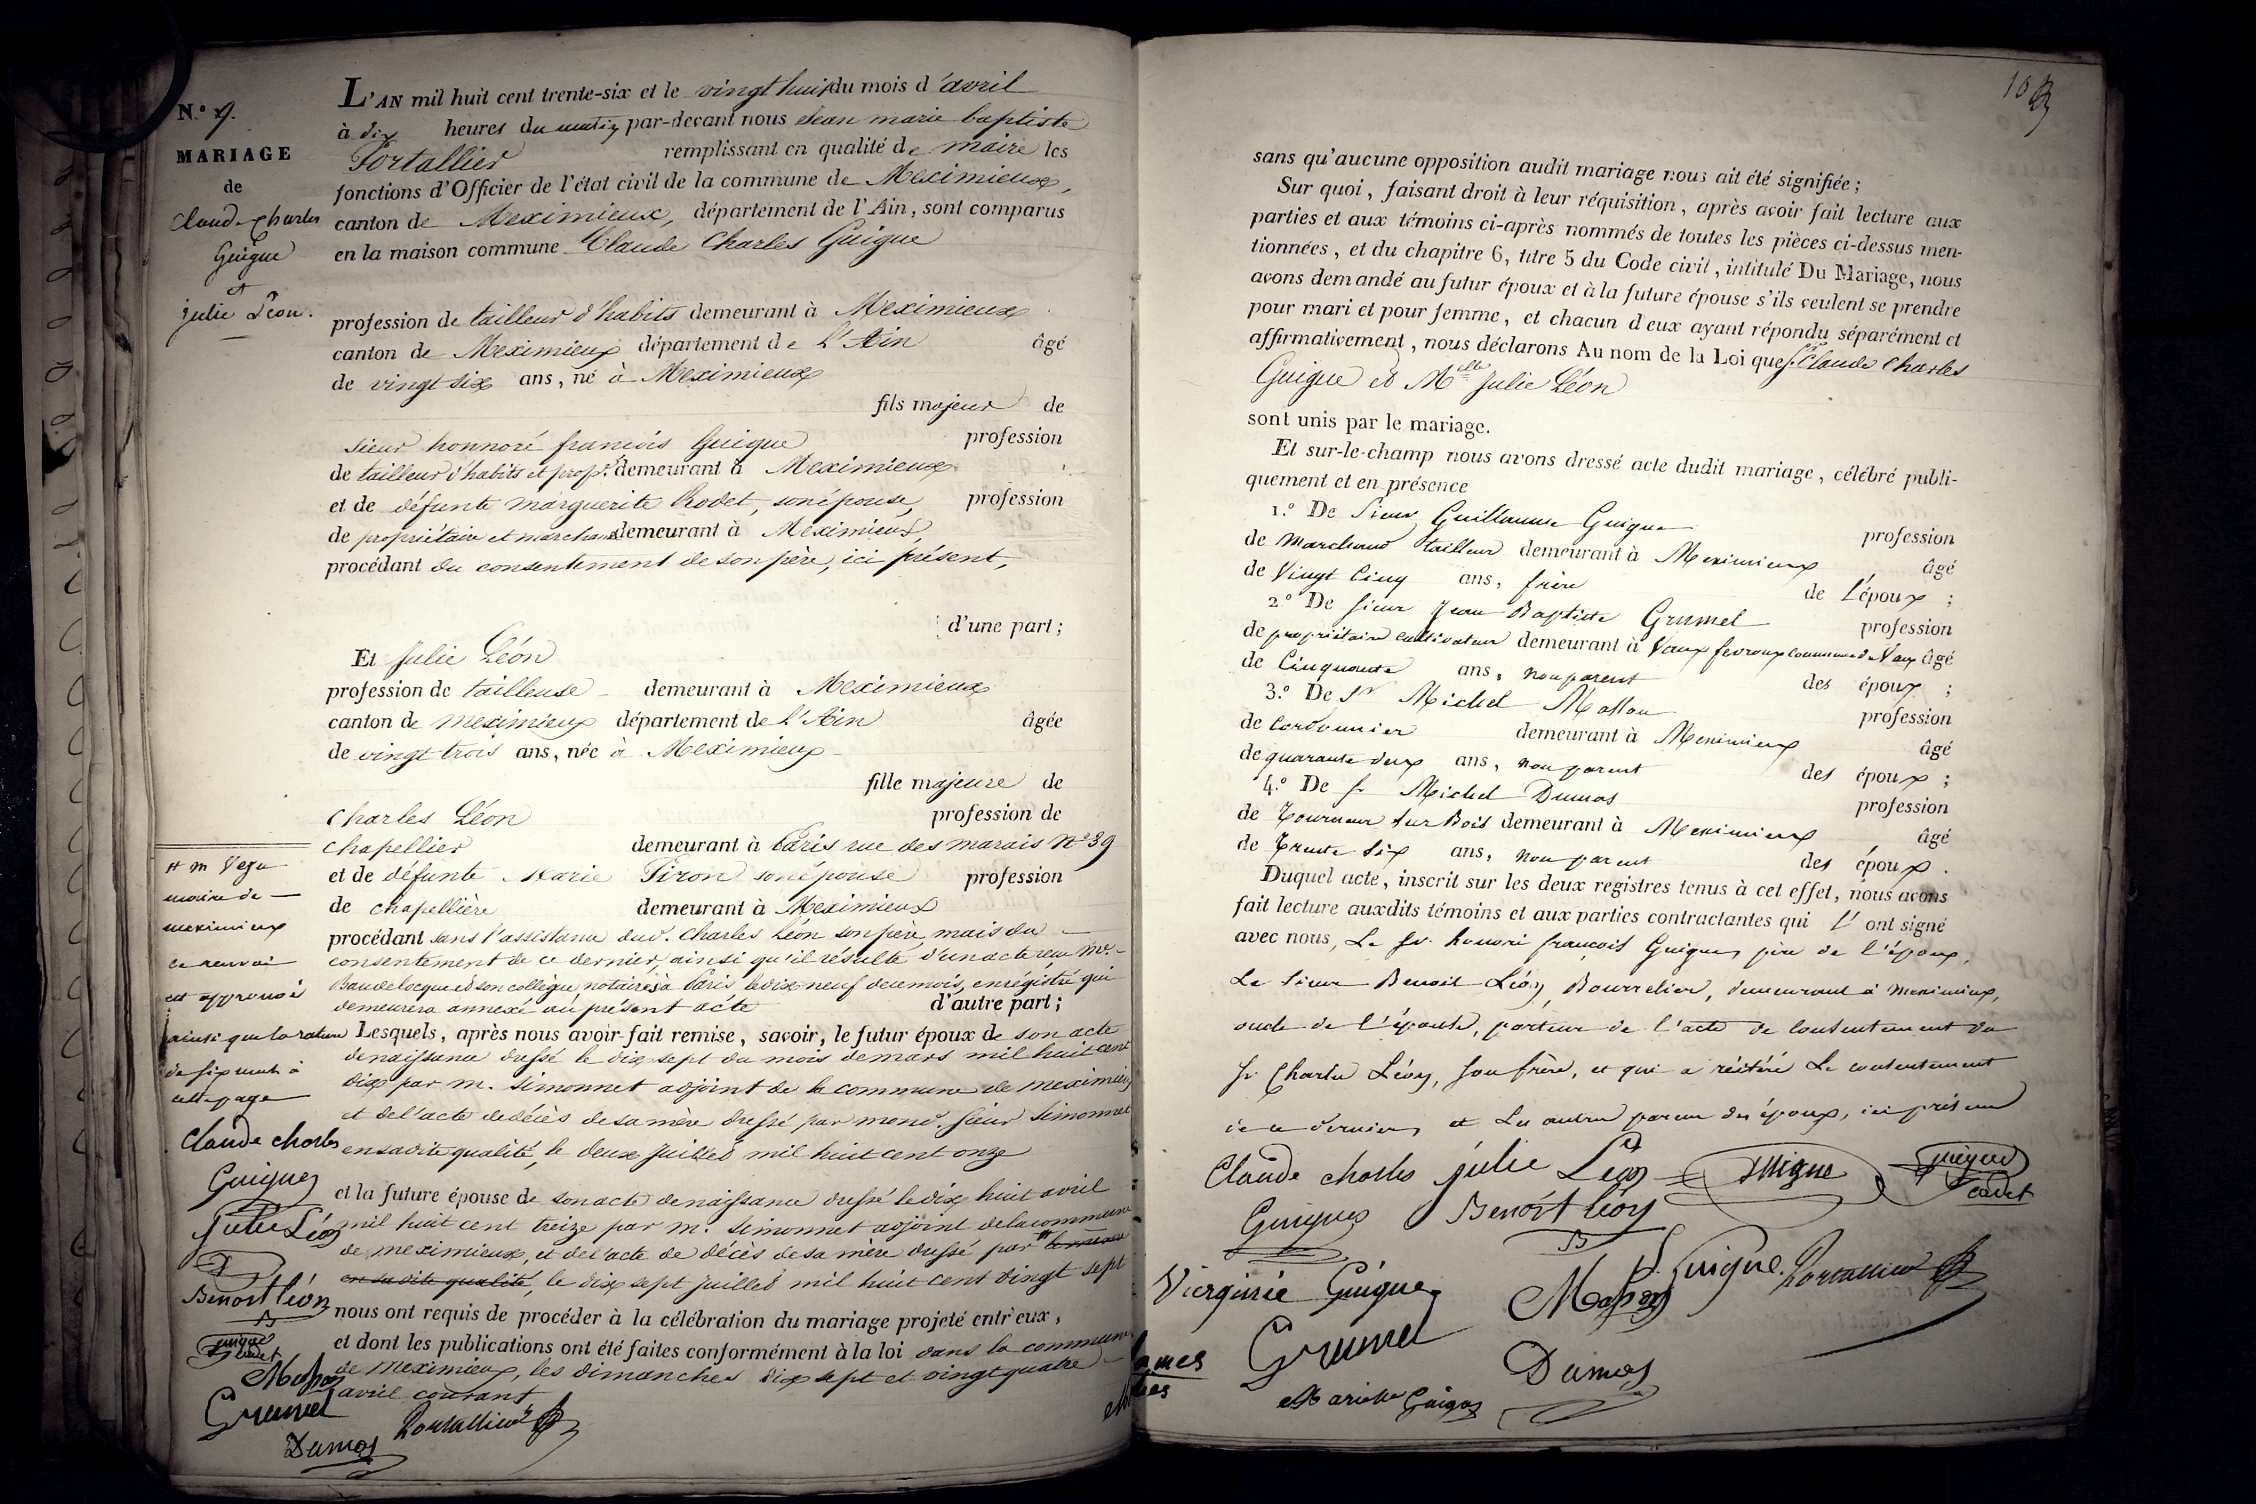 N.º 9.
MARIAGE
de
Claude Charles
Guigue
et
julie Léon.
L'AN mil huit cent trente-six et le vingt huit du mois d'avril
à dix heures du matin par-devant nous Jean marie baptiste
Portallier remplissant en qualité de maire les
fonctions d'Officier de l'état civil de la commune de Meximieux,
canton de Meximieux, département de l'Ain, sont comparus
en la maison commune Claude Charles Guigue
profession de tailleur d'habits demeurant à Meximieux
canton de Meximieux département de l'Ain âgé
de vingt six ans, né à Meximieux
fils majeur de
sieur honnoré francois Guigue profession
de tailleur d'habits et prop.re demeurant à Meximieux
et de défunte marguerite Rodet, son épouse, profession
de propriétaire et marchande demeurant à Meximieux,
procédant du consentement de son père, ici présent,
d'une part ;
Et Julie Léon
profession de tailleuse demeurant à Meximieux
canton de meximieux département de l'Ain âgée
de vingt trois ans, née à Meximieux
fille majeure de
Charles Léon profession de
chapellier demeurant à Paris rue des marais Nº 39
et de défunte Marie Tiron son épouse profession
de chapellière demeurant à Meximieux
procédant sans l'assistance dud. Charles Léon son père, mais du
consentement de ce dernier, ainsi qu'il résulte d'un acte reçu Me.
Baudelocque et son collègue notaires à Paris le dix neuf de ce mois, enrégistré qui
demeurera annexé au présent acte d'autre part ;
Lesquels, après nous avoir fait remise, savoir, le futur époux de son acte
de naissance dressé le dix sept du mois de mars mil huit cent
dix par m. Simonnet adjoint de la commune de meximieux
et de l'acte de décès de sa mère dressé par mend. sieur Simonnet
en sa dite qualité, le deux juillet mil huit cent onze
et la future épouse de son acte de naissance dressé le dix huit avril
mil huit cent treize par m. Simonnet adjoint de la commune
de meximieux, et de l'acte de décès de sa mère dressé par
en sa dite qualité, le dix sept juillet mil huit cent vingt sept
nous ont requis de procéder à la célébration du mariage projeté entr'eux,
et dont les publications ont été faites conformément à la loi dans la commune
de meximieux, les dimanches dix sept et vingt quatre
avril courant
maire de
meximieux
ce renvoi
est approuvé
ainsi que la rature
de six mots à
cette page
Claude charles
Guigue
Julie Léon
Benoit Léon
Guigue
cadet
Grumel
Portallier
Dumas
103
sans qu'aucune opposition audit mariage nous ait été signifiée ;
Sur quoi, faisant droit à leur réquisition, après avoir fait lecture aux
parties et aux témoins ci-après nommés de toutes les pièces ci-dessus men-
tionnées, et du chapitre 6, titre 5 du Code civil, intitulé Du Mariage, nous
avons demandé au futur époux et à la future épouse s'ils veulent se prendre
pour mari et pour femme, et chacun d'eux ayant répondu séparément et
affirmativement, nous déclarons Au nom de la Loi que S.r Claude Charles
Guigue et Melle Julie Léon
sont unis par le mariage.
Et sur-le-champ nous avons dressé acte dudit mariage, célébré publi-
quement et en présence
1.º De Sieur Guillaume Guigue profession
de marchand tailleur demeurant à Meximieux âgé
de Vingt Cinq ans, frère de l'époux ;
2.º De sieur Jean Baptiste Grumel profession
de propriétaire cultivateur demeurant à Vaux fevroux commune de Vaux âgé
de Cinquante ans, non parent des époux ;
3.º De Sr Michel profession
de Cordonnier demeurant à Meximieux âgé
de quarante deux ans, non parent des époux ;
4.º De Sr Michel Dumas profession
de Tourneur sur Bois demeurant à Meximieux âgé
de Trente Six ans, non parent des époux.
Duquel acte, inscrit sur les deux registres tenus à cet effet, nous avons
fait lecture auxdits témoins et aux parties contractantes qui l'ont signé
avec nous, Le Sr. honoré françois Guigue, père de l'époux,
Le Sieur Benoit Léon, Bourrelier, demeurant à Meximieux,
oncle de l'épouse, porteur de l'acte de Consentement du
Sr Charles Léon, son frère, et qui a réitéré le consentement
de ce dernier, et les autres parens des époux, ici présens
Claude charles julie Léon Guigue Guigue
cadet
Guigue Benoit Léon
Virginie Guigue J. Guigue. Portallier
Grumel
Dumas
Mariette Guigue